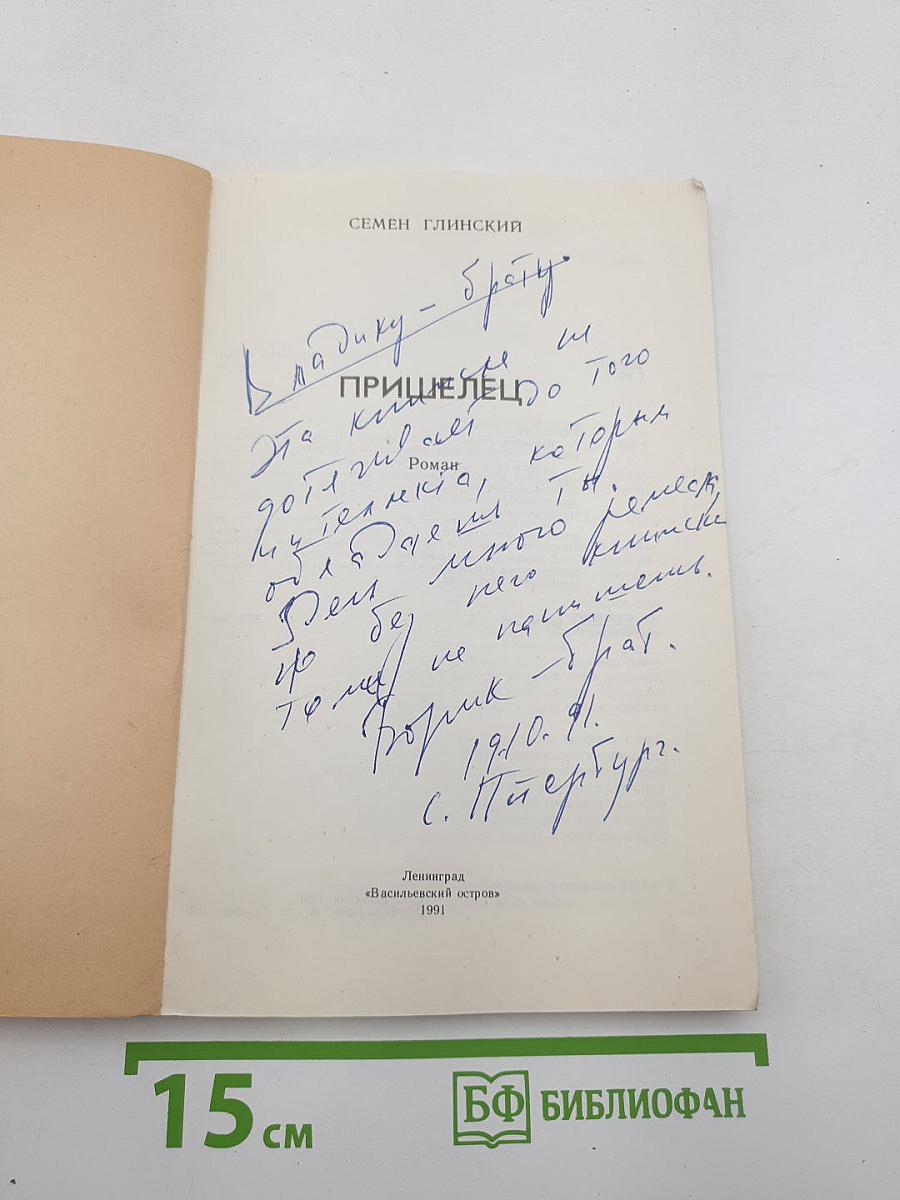 СЕМЕН ГЛИНСКИЙ
Владику - брату.
ПРИШЕЛЕЦ
Эта книжка не
дотягивает до того
Роман
интеллекта, которым
обладаешь ты.
много ремесла,
но без него книжки
тоже не напишешь.
Борик - брат.
19.10.91.
с. Птербург.
Ленинград
«Васильевский остров»
1991
15 см
БФ БИБЛИОФАН